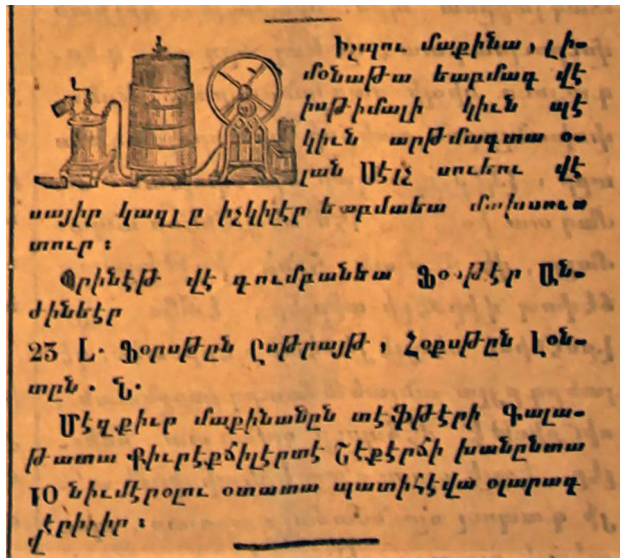 Իշպու մաքինա, լի-
մօնաթա եափմագ վէ
իսթիմալի կիւն պէ
կիւն արթմագտա օ-
լան Սէլչ սուեու վէ
սայիր կազլը իչկիլէր եափմաեա մախսուս
տուր :
Պրինէթ վէ գումբանեա Ֆօսթէր Ան-
ժինեէր
23 Լ. Ֆօրսթըն Ըսթրայթ, Հօքսթըն Լօն-
տըն. Ն.
Մէզքիւր մաքինանըն տէֆթէրի Գալա-
թատա Քիւրէքճիլէրտէ Շէքէրճի խանընտա
10 նիւմէրօլու օտատա պատիհէվա օլարագ
վէրիլիր :